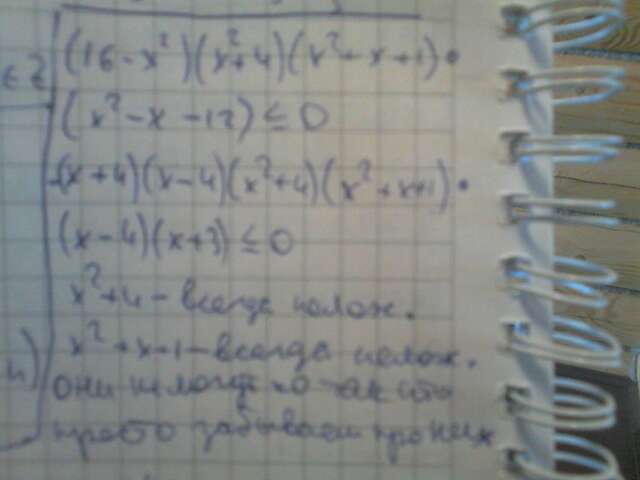 (16-x²)(x²+4)(x²+x+1)·
(x²-x-12)≤0
-(x+4)(x-4)(x²+4)(x²+x+1)·
(x-4)(x+3)≤0
x²+4-всегда полож.
x²+x+1-всегда полож.
они
просто забываем про них